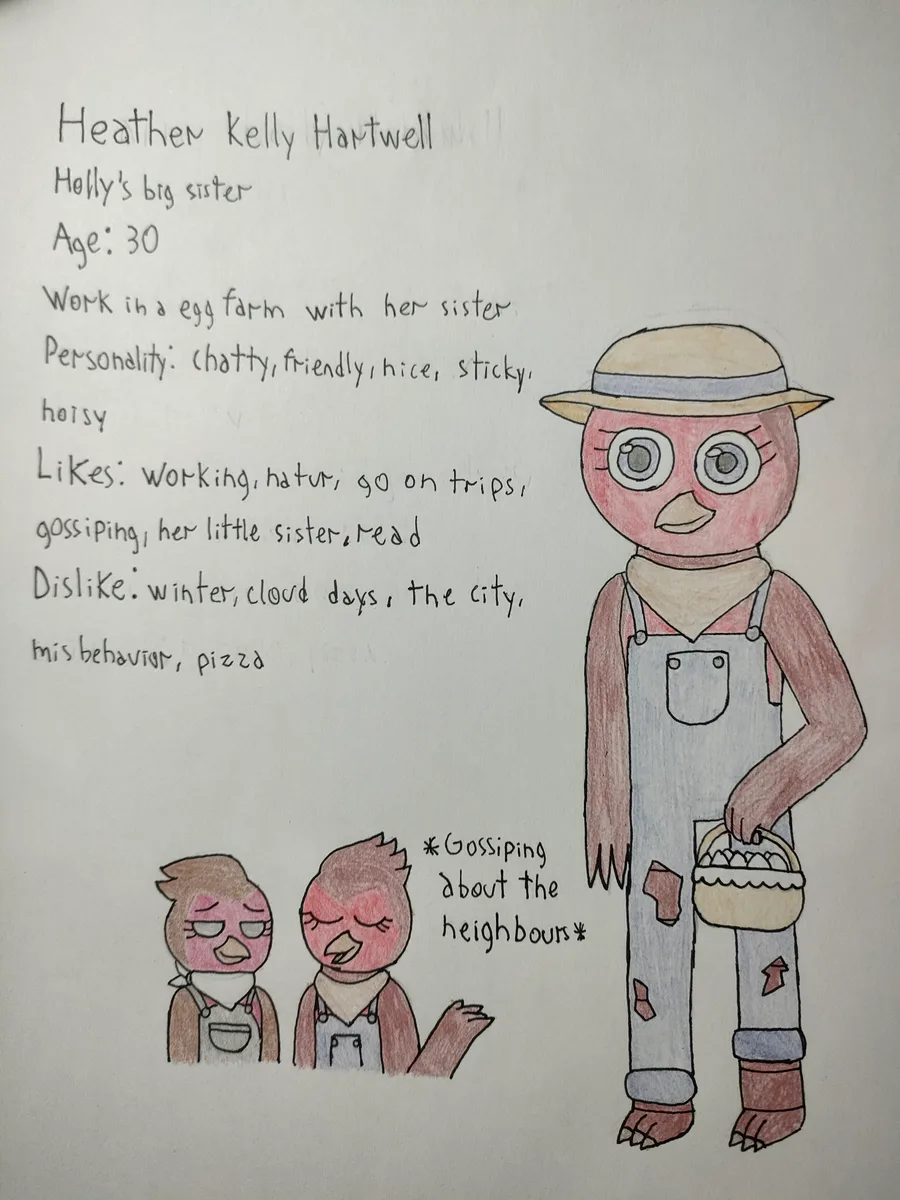 Heather Kelly Hartwell
Holly's big sister
Age: 30
Work in a egg farm with her sister
Personality: chatty, friendly, nice, sticky,
noisy
Likes: working, natur, go on trips,
gossiping, her little sister, read
Dislike: winter, cloud days, the city,
misbehavior, pizza
*Gossiping
about the
neighbours*